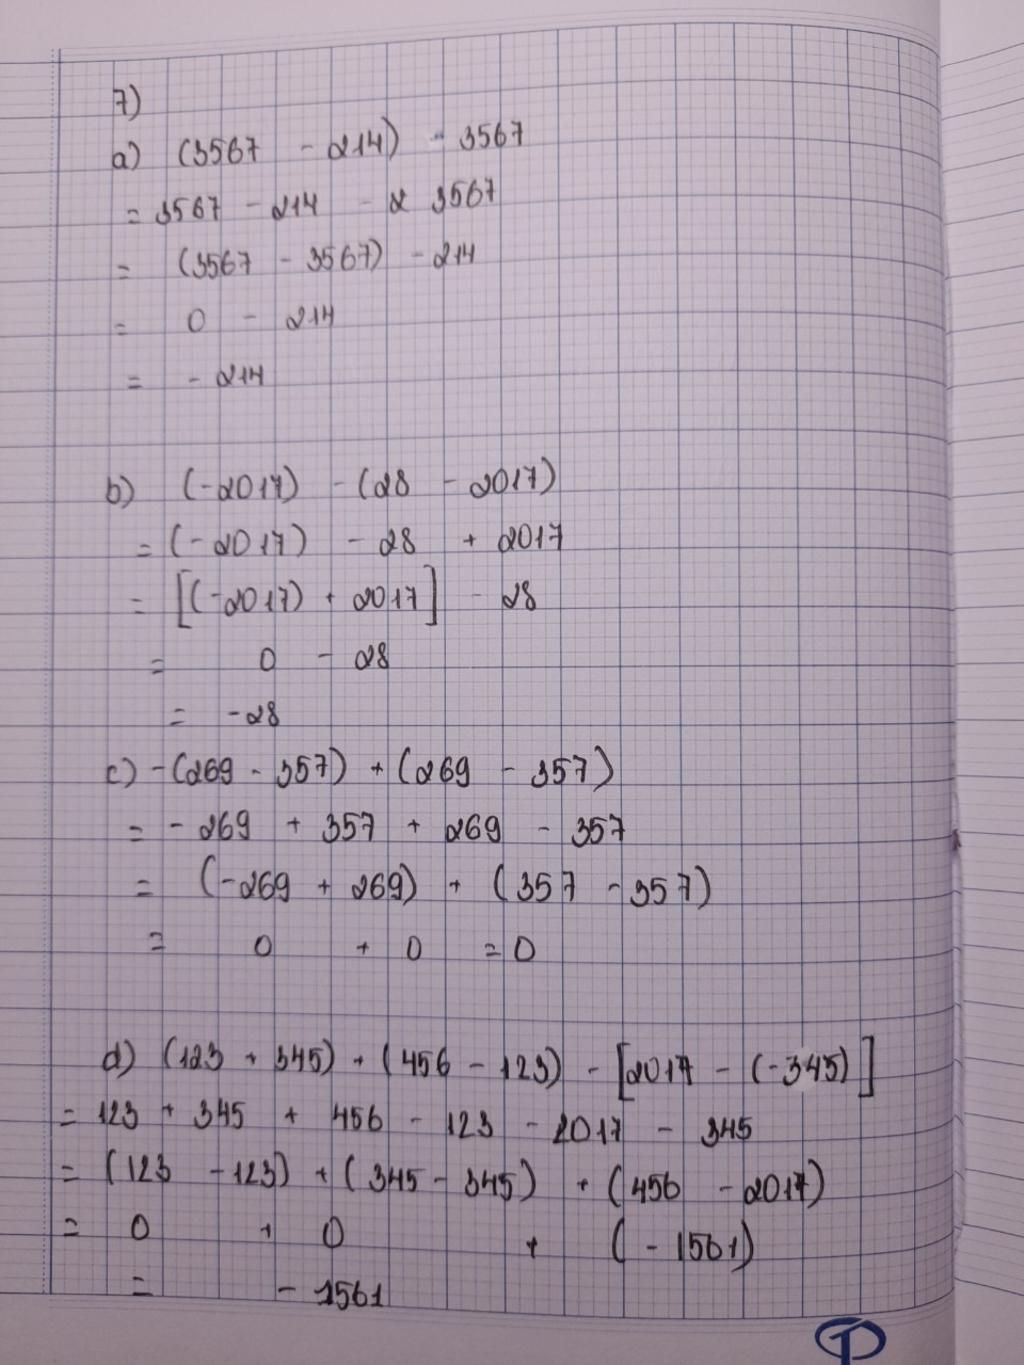 7)
a) (3567 - 214) - 3567
= 3567 - 214 - 3567
= (3567 - 3567) - 214
= 0 - 214
= - 214
b) (-2017) - (28 - 2017)
= (-2017) - 28 + 2017
= [(-2017) + 2017] - 28
= 0 - 28
= -28
c) -(269 - 357) + (269 - 357)
= - 269 + 357 + 269 - 357
= (-269 + 269) + (357 - 357)
= 0 + 0 = 0
d) (123 + 345) + (456 - 123) - [2017 - (-345)]
= 123 + 345 + 456 - 123 - 2017 - 345
= (123 - 123) + (345 - 345) + (456 - 2017)
= 0 + 0 + (-1561)
= - 1561